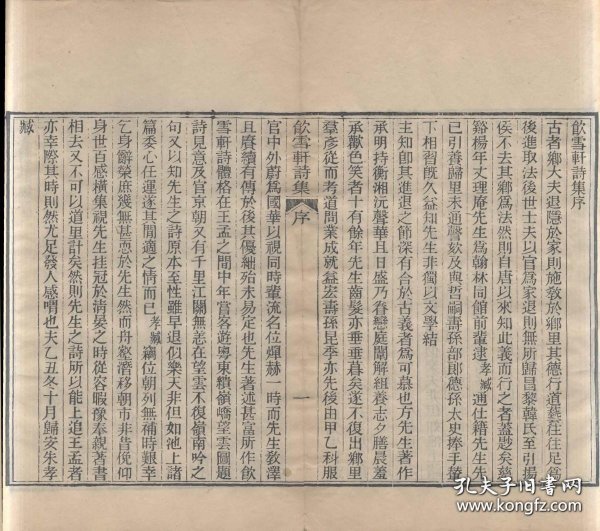 飲雪軒詩集序
古者鄉大夫退隱於家則施教於鄉里其德行道藝往往足爲
後進取法後世士夫以官爲家退則無所歸昌黎韓氏至引揚
侯不去其鄉爲法然則自唐以來知此義而行之者蓋尠矣慈
谿楊年丈理庵先生爲翰林同館前輩逮孝臧通仕籍先生先
已引養歸里未通聲欬及與哲嗣壽孫部郎德孫太史捧手替
下相習旣久益知先生非獨以文學結
主知卽其進退之節深有合於古義者爲可慕也方先生著作
承明持衡湘沅聲華且日盛乃眷戀庭闈解組養志夕膳晨羞
承歡色笑者十有餘年先生齒髮亦垂垂暮矣遂不復出鄉里
羣彥從而考道問業成就益宏壽孫昆季亦先後由甲乙科服
飲雪軒詩集 序 一
官中外蔚爲國華以視同時輩流名位燀赫一時而先生敎澤
且賡續有傳於後其優絀殆未易定也先生著述甚富所作飲
雪軒詩體格在王孟之間中年嘗客遊粵東積嶺嶠望雲圖題
詩見意及官京朝又有千里江關無恙在望雲不復嶺南吟之
句又以知先生之詩原本至性雖早退似樂天非但如池上諸
篇委心任運遂其閒適之情而已孝臧竊位朝列無補時艱幸
乞身辭榮庶幾無甚恧於先生然而舟壑潛移朝市非昔俛仰
身世百感橫集視先生挂冠於清晏之時從容暇豫奉親著書
相去又不可以道里計矣然則先生之詩所以能上追王孟者
亦幸際其時則然尤足發人感喟也夫乙丑冬十月歸安朱孝
臧
孔夫子旧书网